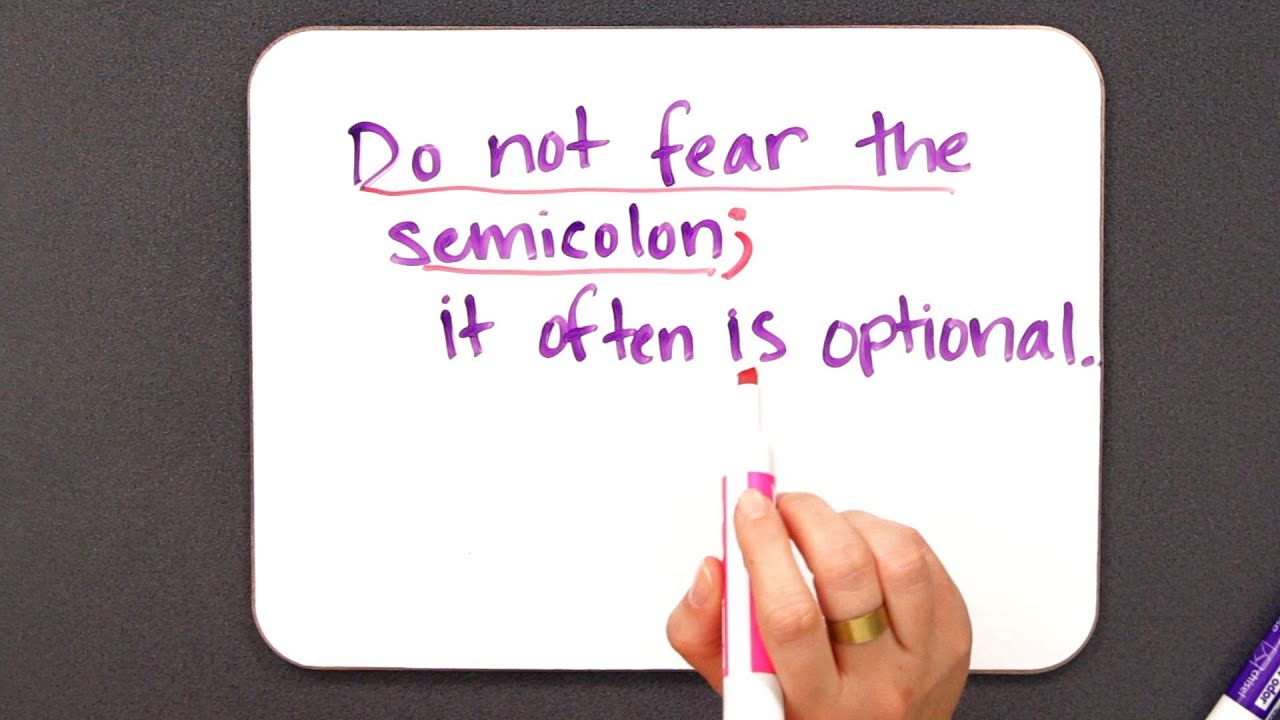 Do not fear the
semicolon;
it often is optional.
chisel
odor